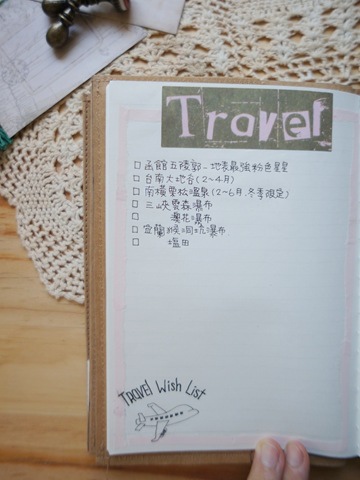 Travel
□ 函館五陵郭－地表最強粉色星星
□ 台南大地谷(2~4月)
□ 南橫栗松溫泉(2~6月.冬季限定)
□ 三峽雲森瀑布
□ 澳花瀑布
□ 宜蘭猴洞坑瀑布
□ 塩田
TRAVEL Wish List